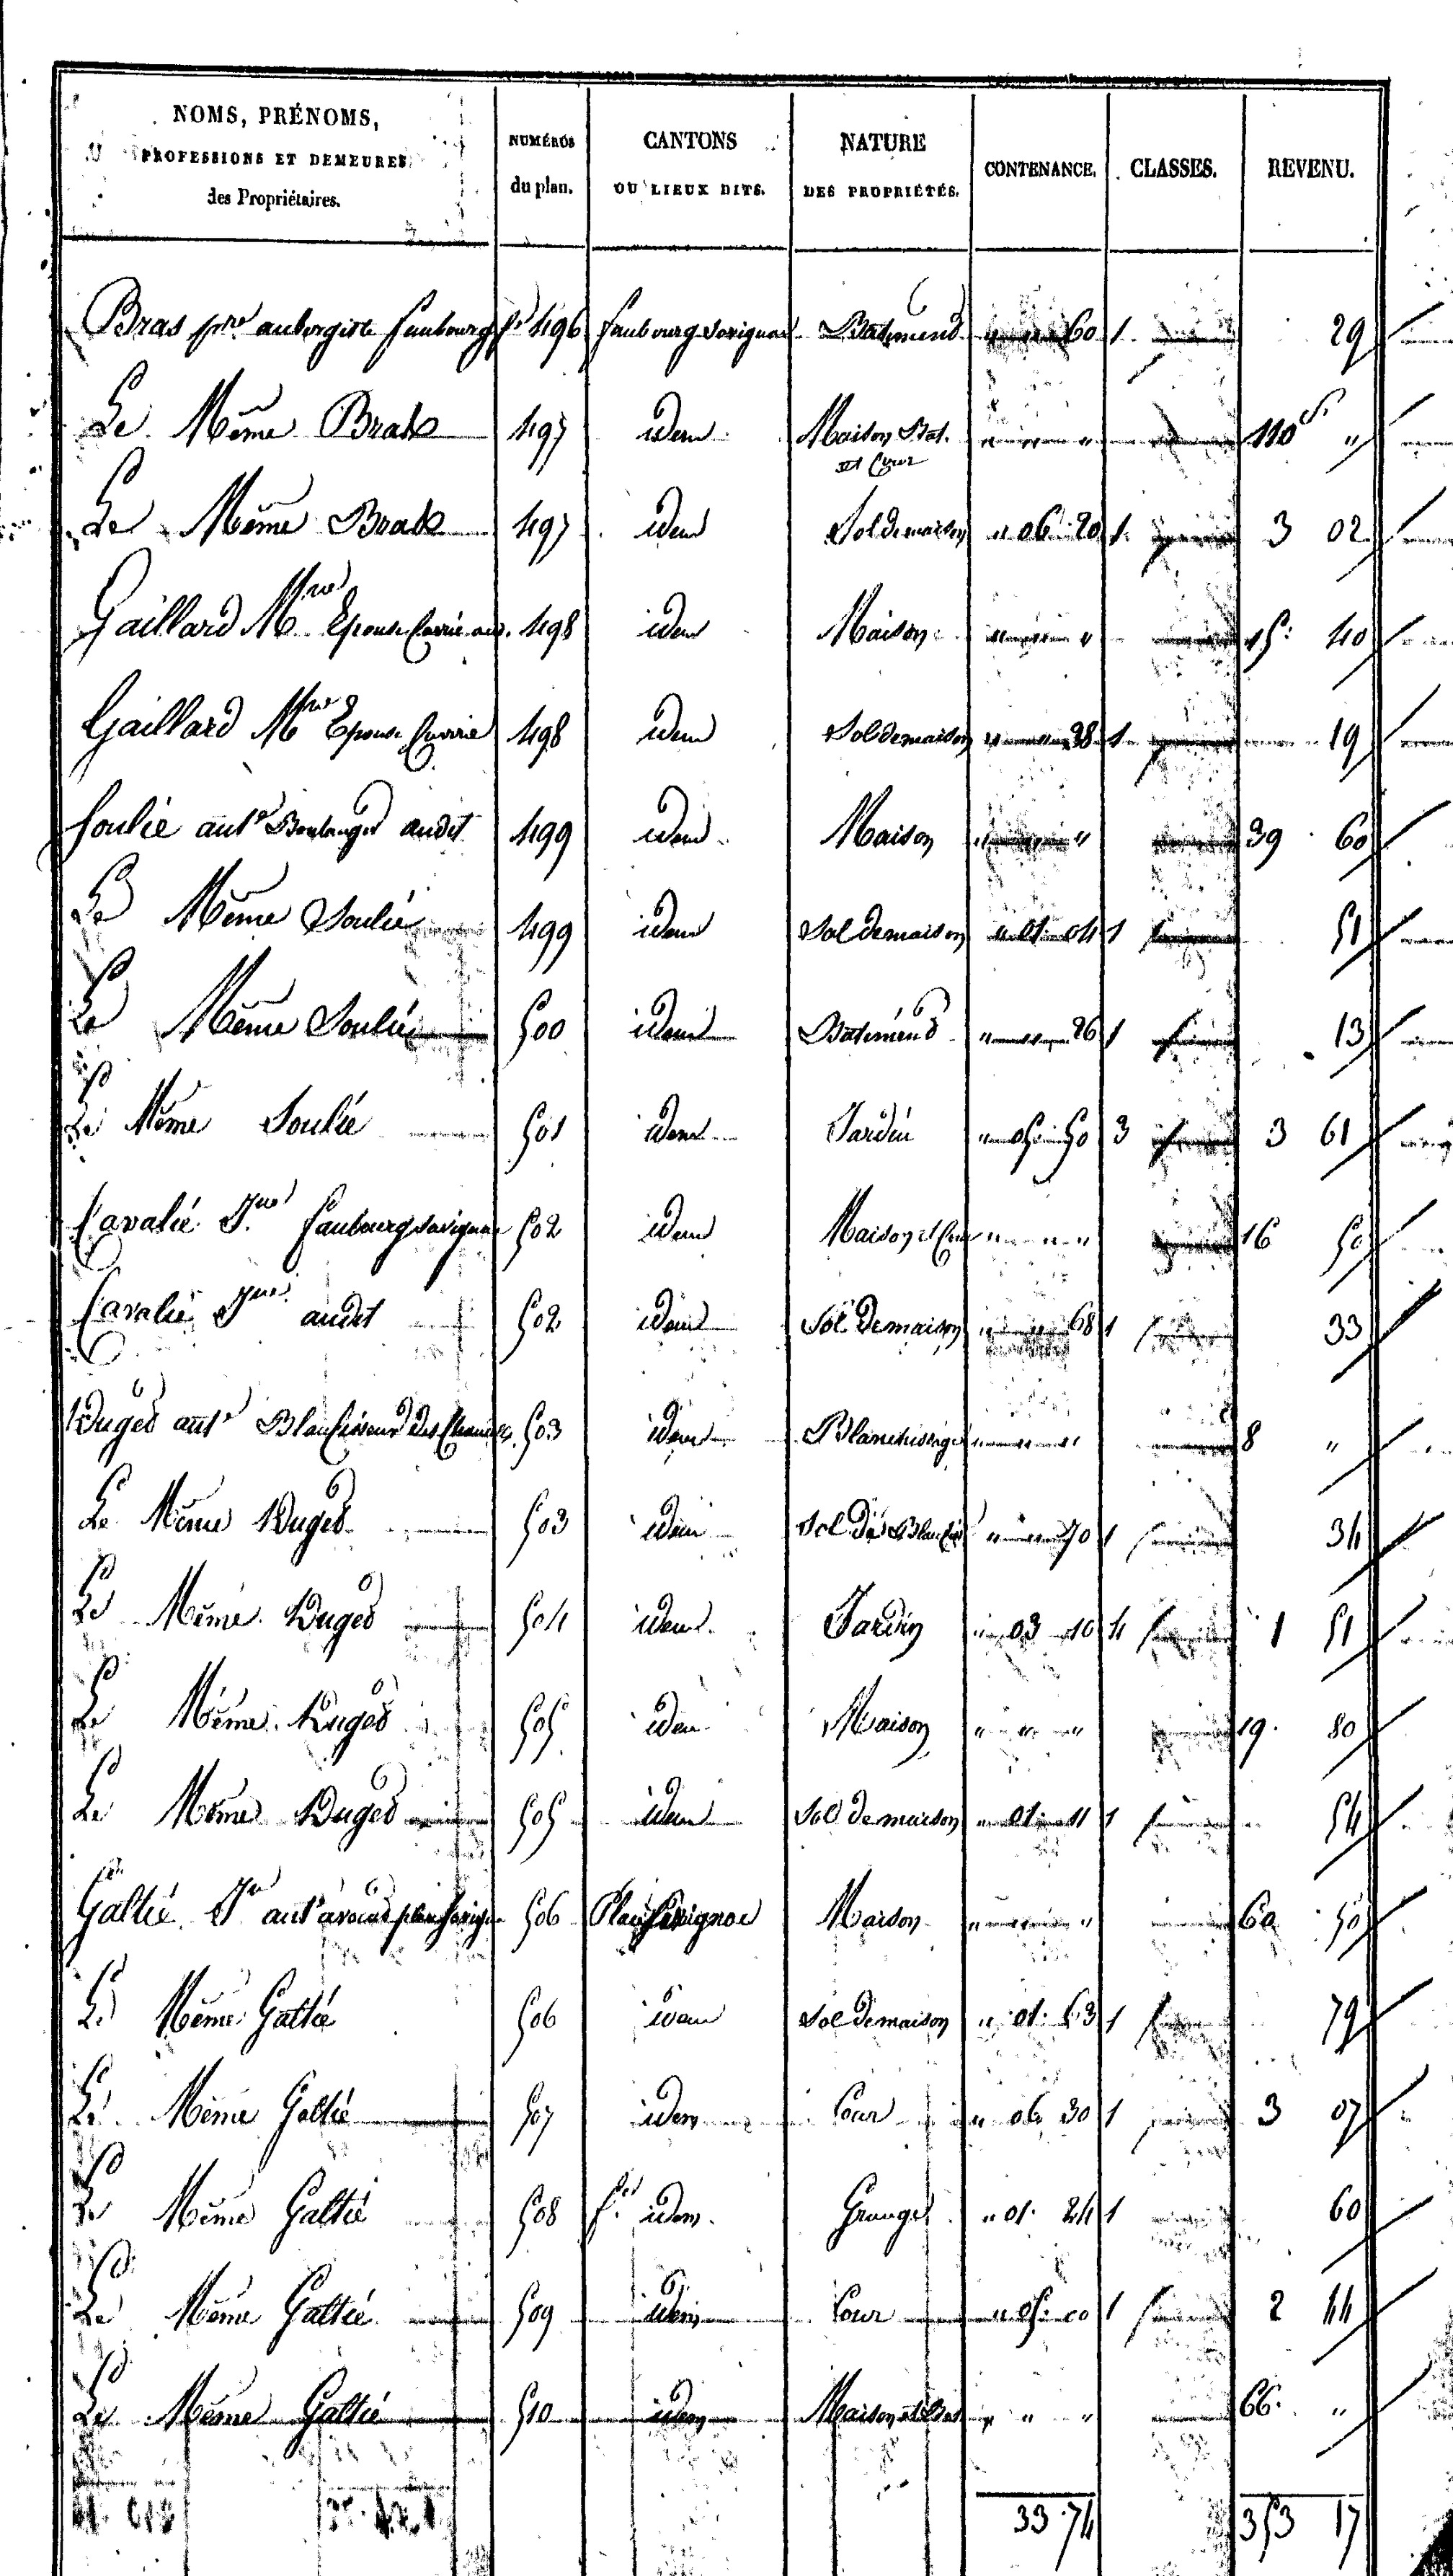 NOMS, PRÉNOMS,
PROFESSIONS ET DEMEURES
des Propriétaires.
NUMÉROS
du plan.
CANTONS
OU LIEUX DITS.
NATURE
DES PROPRIÉTÉS.
CONTENANCE.
CLASSES.
REVENU.
Bras pre aubergiste faubourg 496 faubourg savignac Batiment " " 60 1 29
Le Même Bras 497 idem Maison Bat. 110 "
et Cour
Le Même Bras 497 idem Sol de maison " 06 20 1 3 02
Gaillard Mre Epouse Carrié aud. 498 idem Maison " " " 15 40
Gaillard Mre Epouse Carrié 498 idem Sol de maison " " 38 1 19
Soulié ante Boulanger audit 499 idem Maison " " " 39 60
Le Même Soulié 499 idem Sol de maison " 01 04 1 51
Le Même Soulié 500 idem Batiment " " 26 1 13
Le Même Soulié 501 idem Jardin " 05 50 3 3 61
Cavalié Jne faubourg savignac 502 idem Maison et Cour " " " 16 50
Cavalié Jne audit 502 idem Sol de maison " " 68 1 33
Duges ante Blanchisseur 503 idem Blanchissage " " " 8 "
Le Même Duges 503 idem Sol de Blanch " " 70 1 34
Le Même Duges 504 idem Jardin " 03 10 4 1 51
Le Même Duges 505 idem Maison " " " 19 80
Le Même Duges 505 idem Sol de maison " 01 11 1 54
Galtié Jn ante avoué plan savignac 506 Plan savignac Maison " " " 60 50
Le Même Galtié 506 idem Sol de maison " 01 63 1 79
Le Même Galtié 507 idem Cour " 06 30 1 3 07
Le Même Galtié 508 idem Grange " 01 24 1 60
Le Même Galtié 509 idem Cour " 05 00 1 2 44
Le Même Galtié 510 idem Maison et Bat " " " 66 "
33 74 353 17